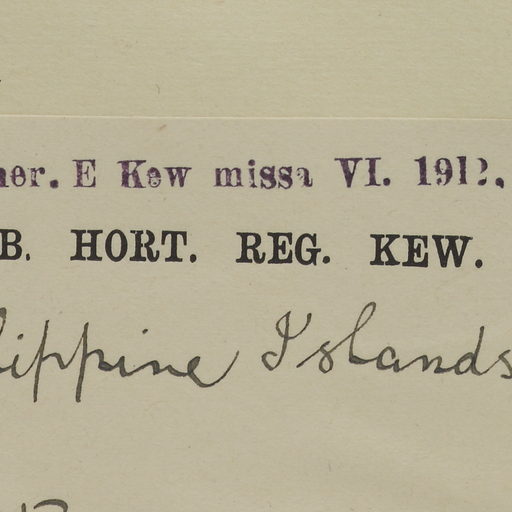 ner. E Kew missa VI. 1912.
B. HORT. REG. KEW.
lippine Islands